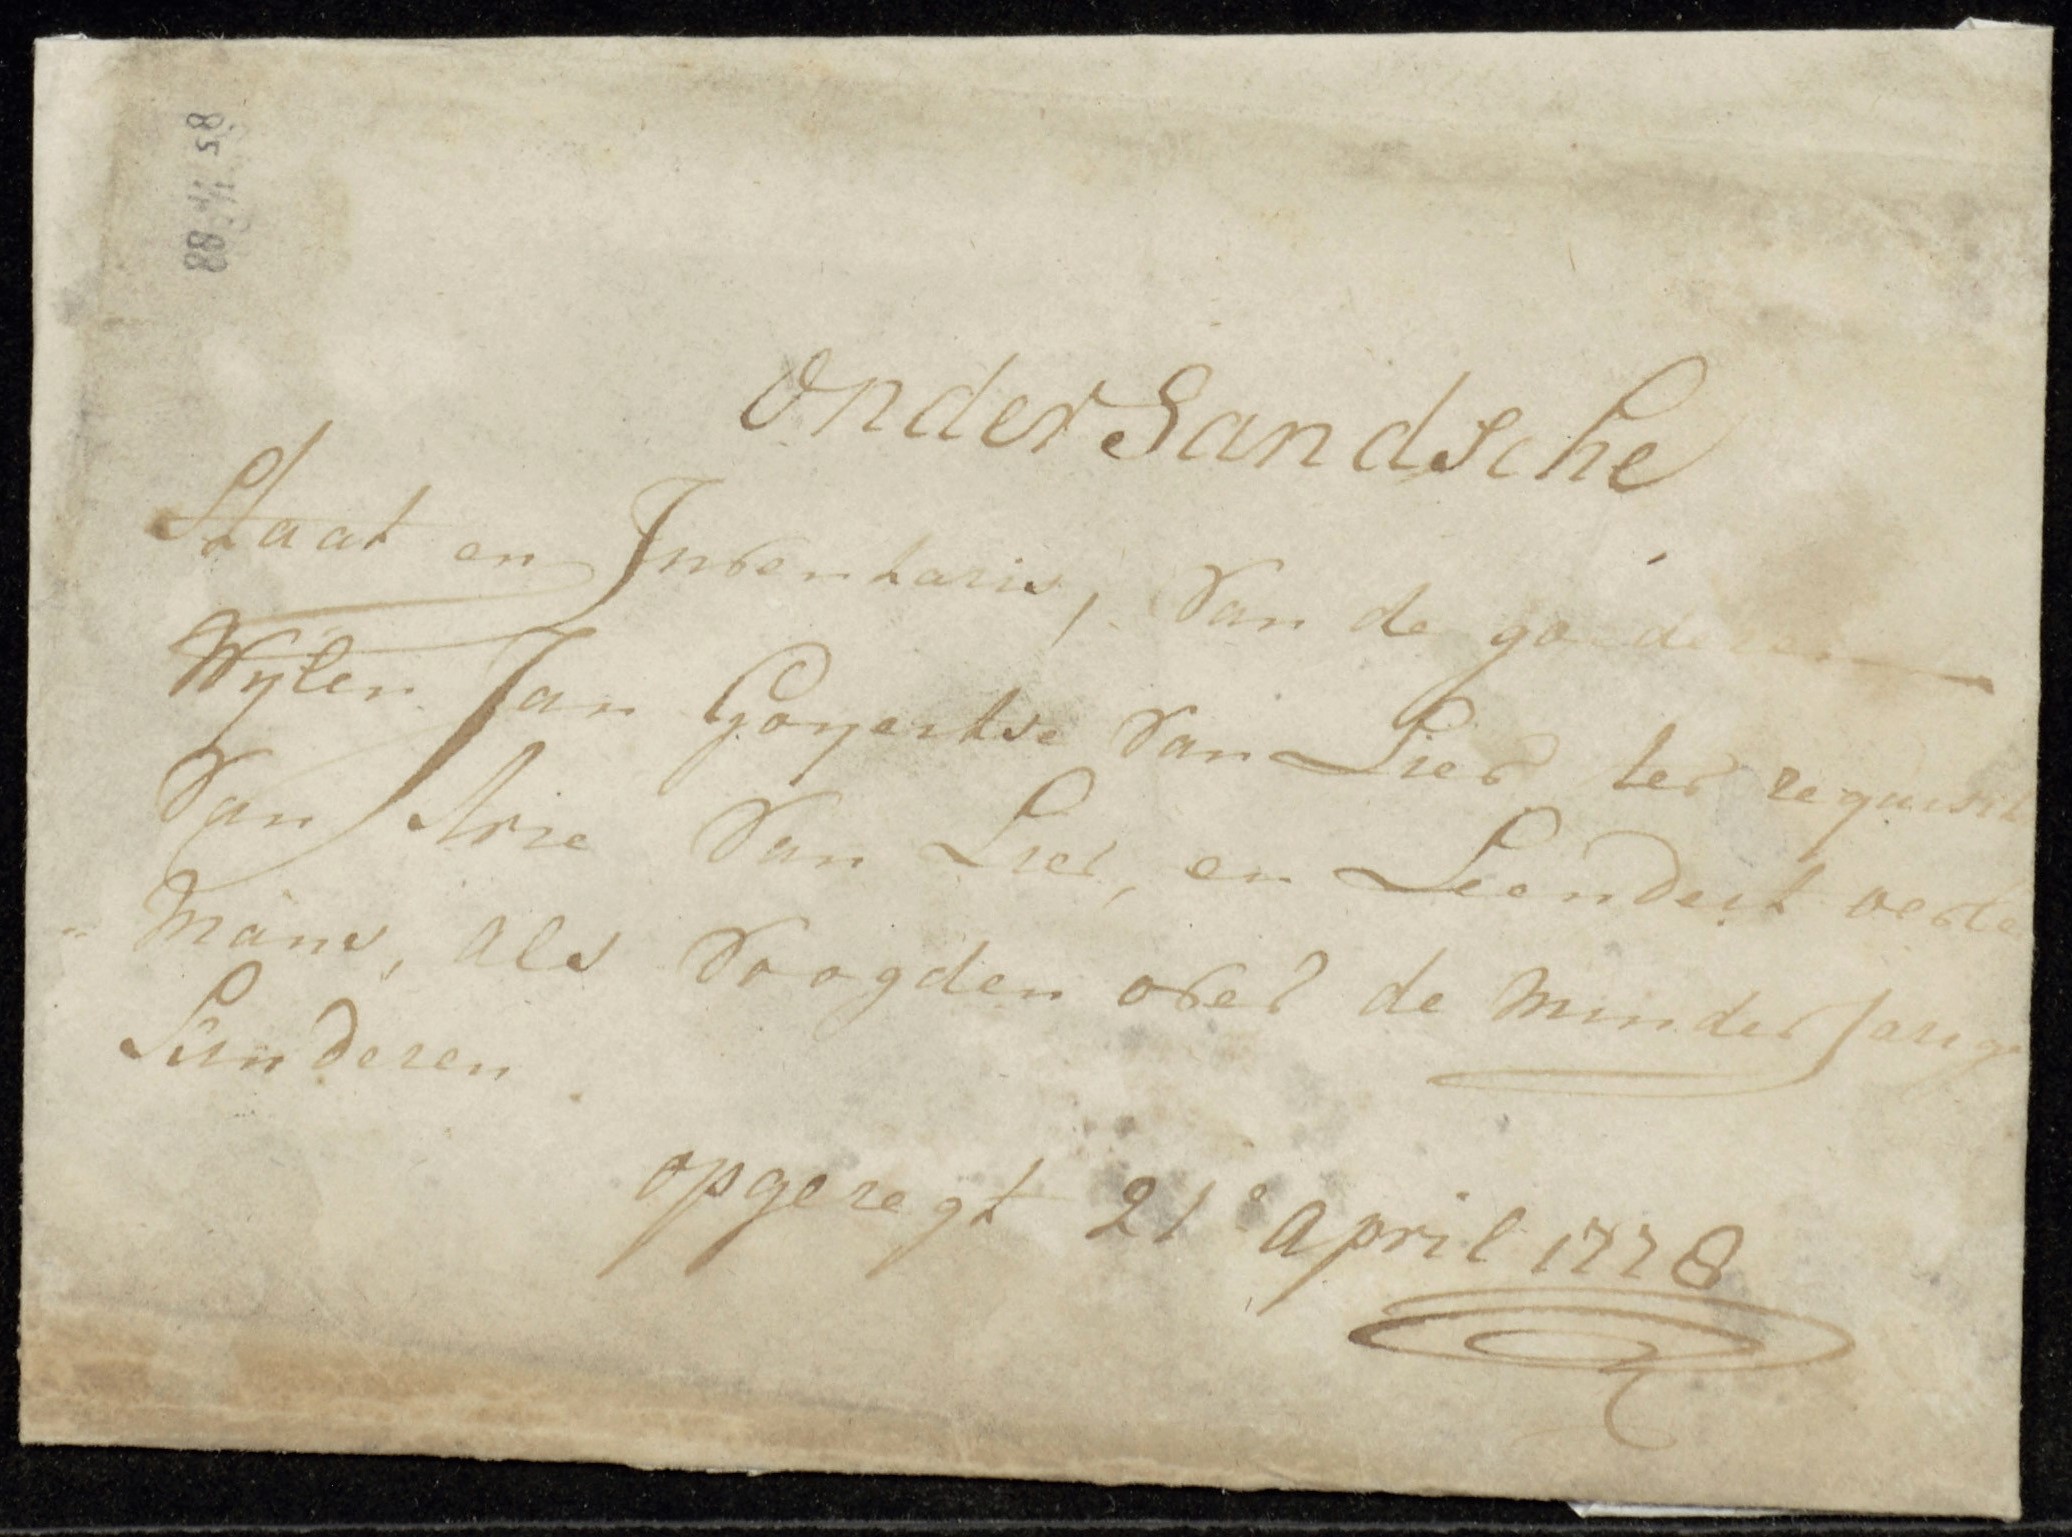 onder Sandsche
Staat en Inventaris, Van de goederen
Wijlen Jan Goyertse Van Lier ter requisit
Van Arie Van Lier, en Leendert oerle
=mans, als Voogden over de minder Jarige
Kinderen
opgeregt 21e April 1778